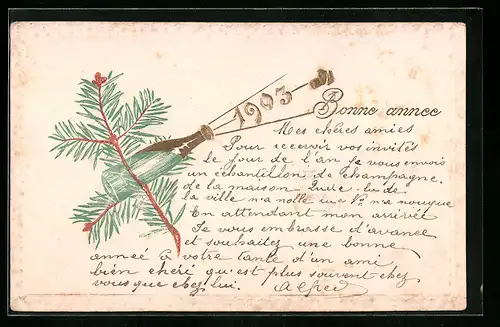 1903
Bonne annee
Mes chères amies
Pour recevoir vos invités
le jour de l'an je vous envois
un échantillon de champagne.
de la maison
la ville n'a
En attendant mon arrivée
Je vous embrasse d'avance
et souhaitez une bonne
année à votre tante d'un ami
bien chéri qu'est plus souvent chez
vous que chez lui. Alfred